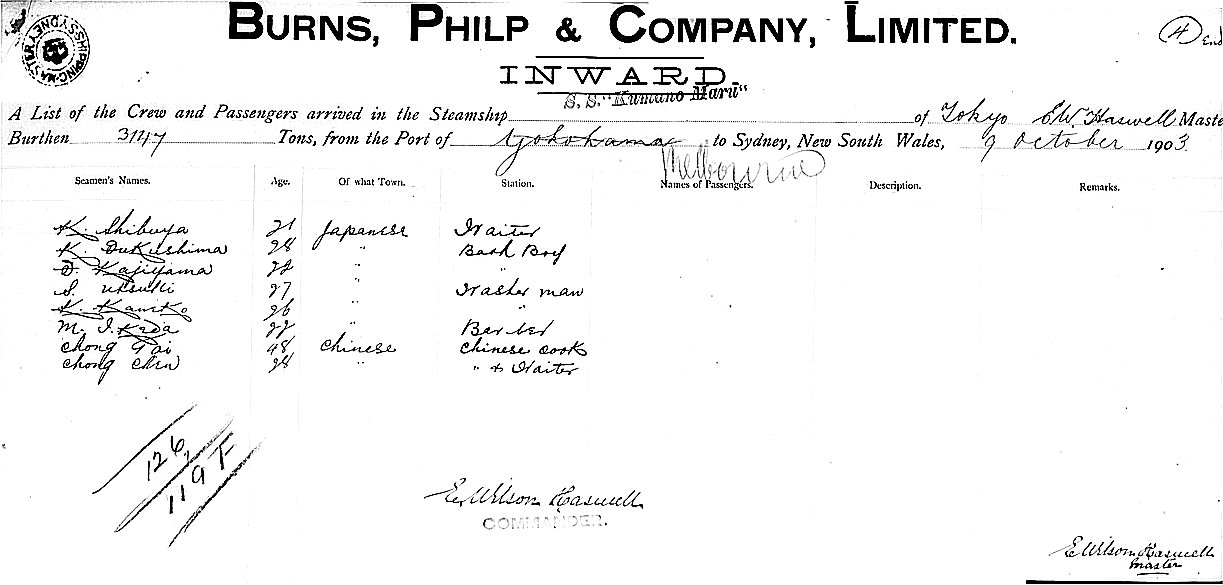 BURNS, PHILP & COMPANY, LIMITED.
(A) End
SHIPPING MASTER SYDNEY
INWARD.
S. S. "Kumano Maru"
A List of the Crew and Passengers arrived in the Steamship of Tokyo EW. Haswell Maste
Burthen 3147 Tons, from the Port of Yokohama to Sydney, New South Wales, 9 October 1903
Melbourne
Seamen's Names. Age. Of what Town. Station. Names of Passengers. Description. Remarks.
K. Shibuya 21 Japanese Waiter
K. Dukushima 28 " Bath Boy
Kajiyama 22 " "
S. 27 " Washer man
K. Kaneko 26 " "
M. Ikeda 22 " Barber
Chong Tai 48 Chinese Chinese Cook
Chong Chen 28 " " & Waiter
126,
119 F
E. Wilson Haswell
COMMANDER.
E Wilson Haswell
Master